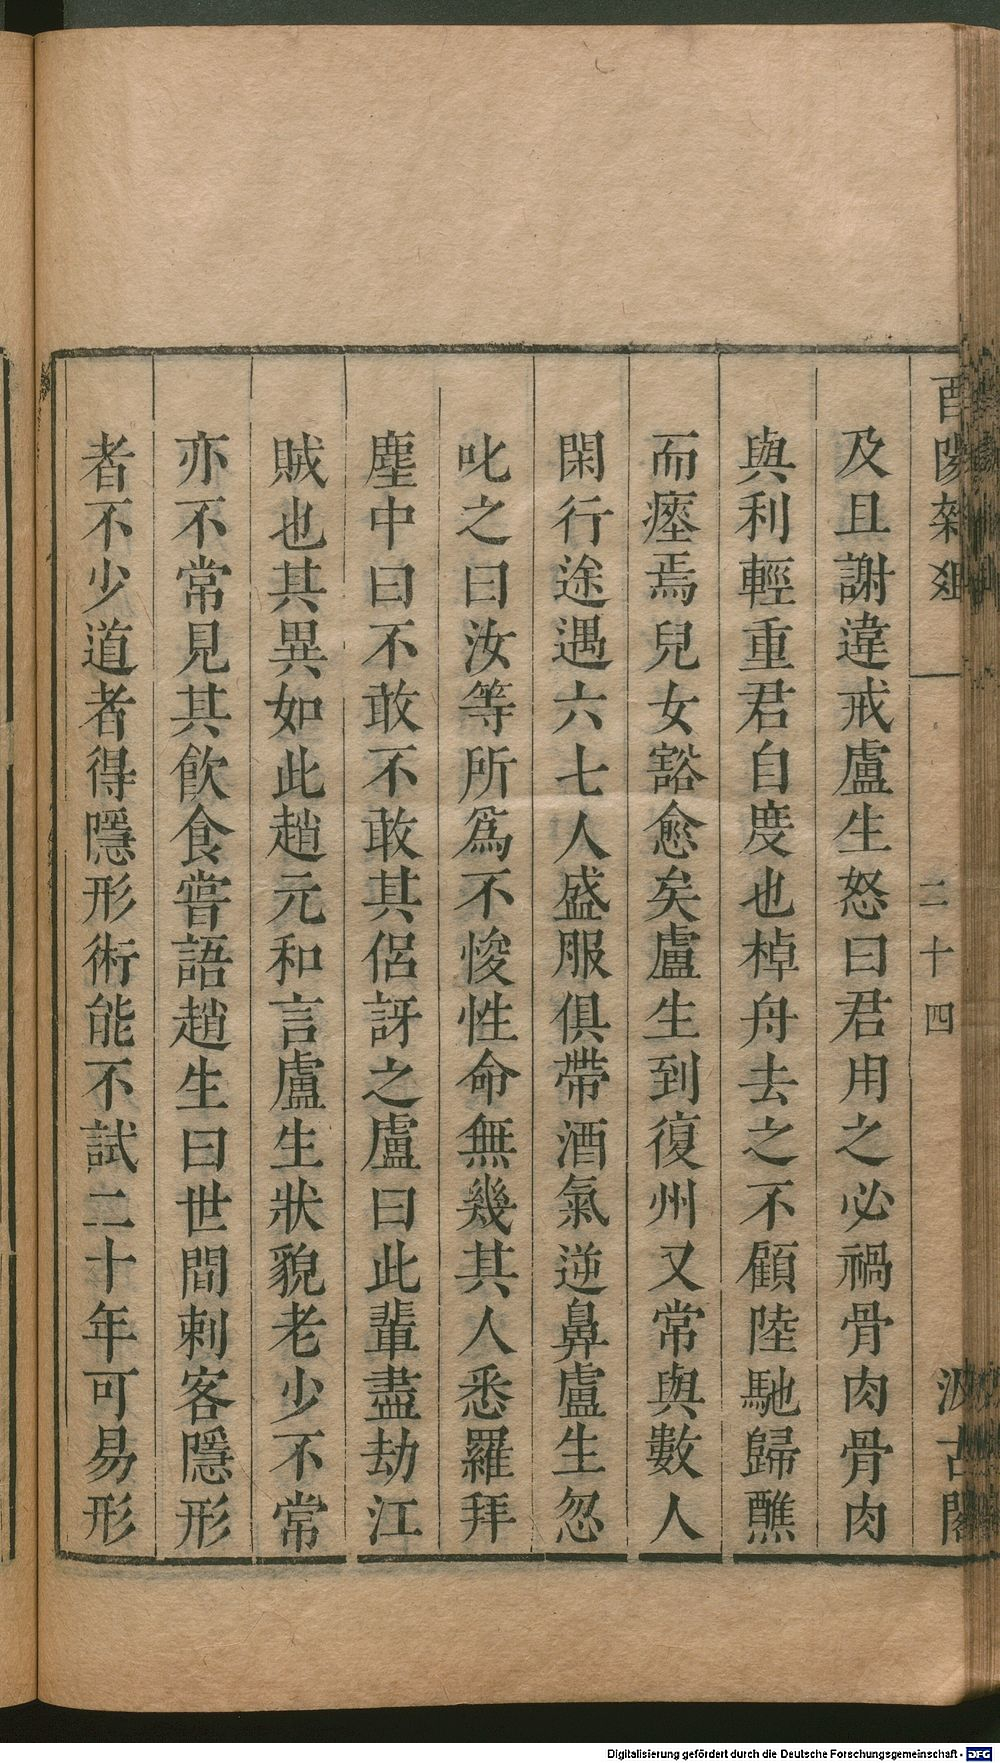 酉陽雜俎
二十四
汲古閣
及且謝違戒盧生怒曰君用之必禍骨肉骨肉
與利輕重君自度也棹舟去之不顧陸馳歸醮
而瘞焉兒女豁愈矣盧生到復州又常與數人
閑行途遇六七人盛服俱帶酒氣逆鼻盧生忽
叱之曰汝等所爲不悛性命無幾其人悉羅拜
塵中曰不敢不敢其侶訝之盧曰此輩盡劫江
賊也其異如此趙元和言盧生狀貌老少不常
亦不常見其飲食嘗語趙生曰世間刺客隱形
者不少道者得隱形術能不試二十年可易形
Digitalisierung gefördert durch die Deutsche Forschungsgemeinschaft - DFG